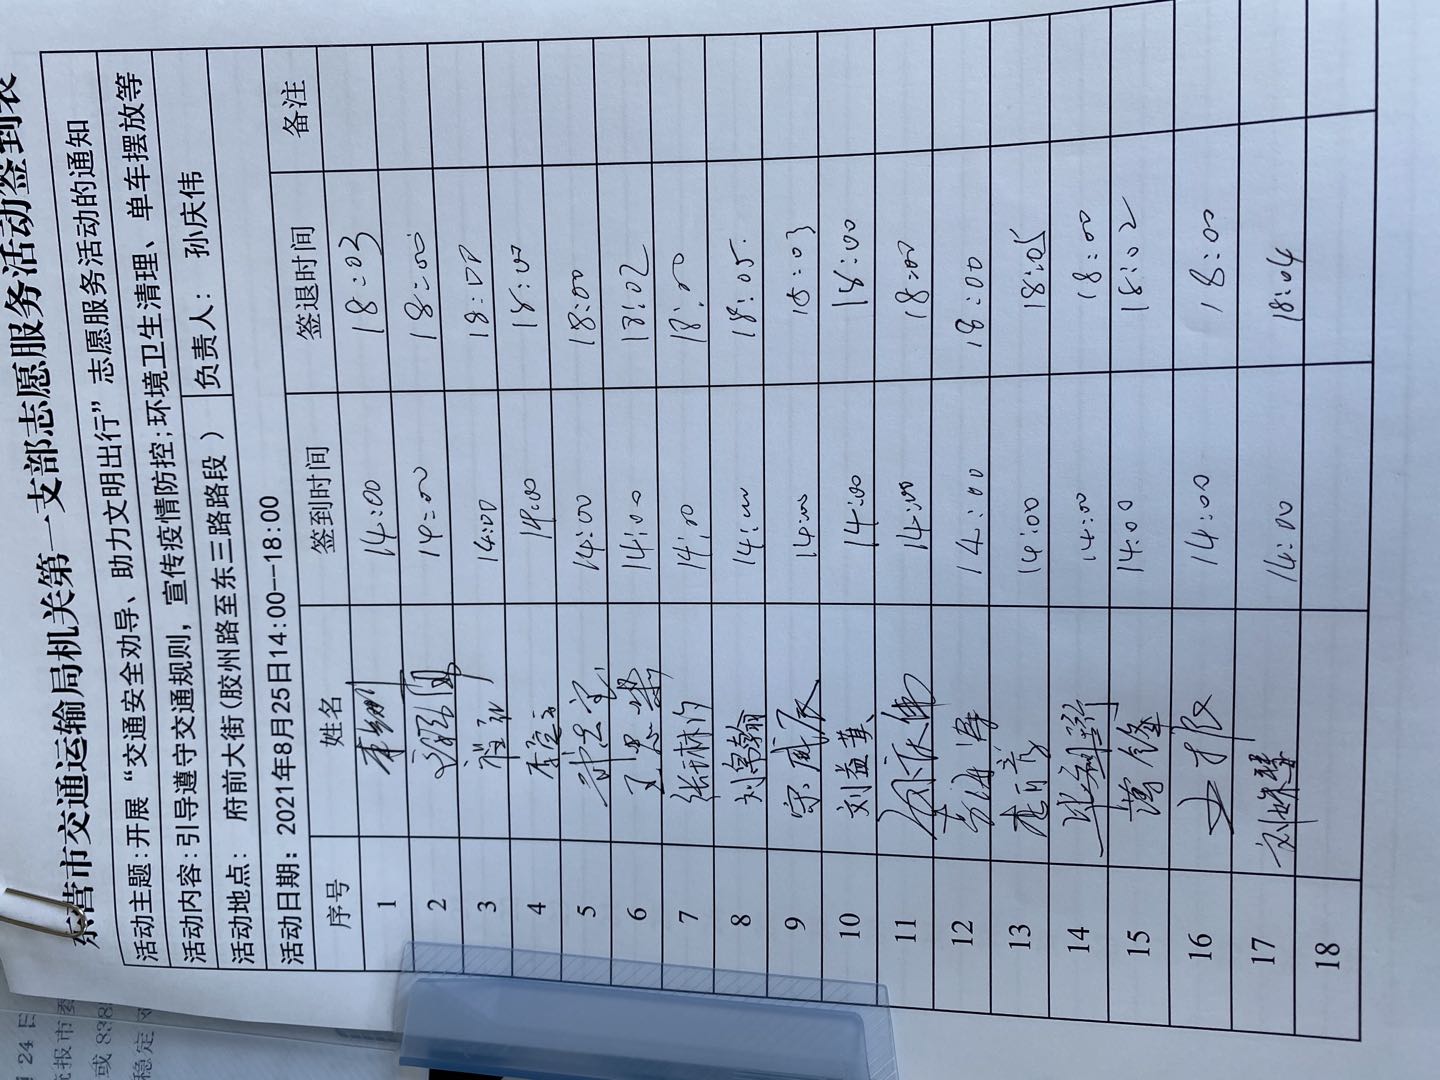 东营市交通运输局机关第一支部志愿服务活动签到表
活动主题:开展“交通安全劝导、助力文明出行”志愿服务活动的通知
活动内容:引导遵守交通规则，宣传疫情防控;环境卫生清理、单车摆放等
活动地点: 府前大街(胶州路至东三路路段) 负责人: 孙庆伟
活动日期: 2021年8月25日14:00--18:00
序号 姓名 签到时间 签退时间 备注
1 14:00 18:03
2 14:00 18:00
3 14:00 18:00
4 14:00 18:00
5 14:00 18:00
6 王思 14:00 18:02
7 张琳 14:00 18:00
8 刘翰 14:00 18:05
9 宋威 14:00 18:03
10 刘益英 14:00 18:00
11 14:00 18:00
12 14:00 18:00
13 14:00 18:05
14 14:00 18:00
15 14:00 18:02
16 14:00 18:00
17 刘 14:00 18:04
18
24日
报市委
或838
稳定